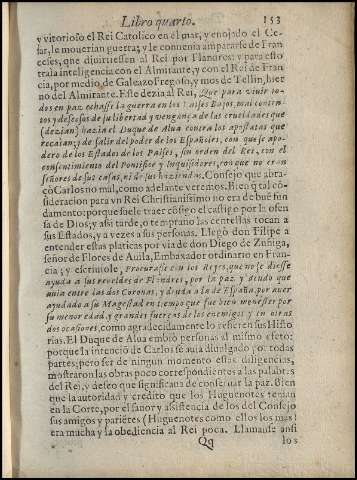 Libro quarto. 153
y vitorioso el Rei Catolico en el mar, y enojado el Ce-
sar, le mouerian guerra; y le conuenia ampararse de Fran
ceses, que diuirtiessen al Rei por Flandres: y para esto
traìa inteligencia con el Almirante, y con el Rei de Fran
cia, por medio de Galeazo Fregoso, y mos de Tellin, hier
no del Almirante. Este dezia al Rei, Que para viuir to-
dos en paz echasse la guerra en los Paises Bajos, mal conten-
tos y desseosos de libertad y vengança de las crueldades que
(dezian) hazia el Duque de Alua contra los apostatas que
recaìan; y de salir del poder de los Españoles, con que se apo-
dero de los Estados de los Paises, sin orden del Rei, con el
consentimiento del Pontifice y Inquisidores, con que no eran
señores de sus casas, ni de sus haziendas. Consejo que abra-
çò Carlos no mal, como adelante veremos. Bien q̃ tal cõ-
sideracion para vn Rei Christianissimo no era de buẽ fun
damento: porque suele traer cõsigo el castigo por la ofen
sa de Dios; y assi tarde, o temprano las centellas tocan a
sus Estados, y a vezes a sus personas. Llegò don Filipe a
entender estas platicas por via de don Diego de Zuñiga,
señor de Flores de Auila, Embaxador ordinario en Fran-
cia; y escriuiole, Procurasse con los Reyes, que no se diesse
ayuda a sus reueldes de Flandres, por la paz y deudo que
auia entre las dos Coronas, y deuda a la de España, por auer
ayudado a su Magestad en tiempo que fue bien menester por
su menor edad, y grandes fuerças de los enemigos y en otras
dos ocasiones, como agradecidamente lo refieren sus Histo
rias. El Duque de Alua embiò personas al mismo efeto:
porque la intenciõ de Carlos se auia diuulgado por todas
partes; pero ser de ningun momento estas diligencias,
mostraron las obras poco correspondientes a las palabras
del Rei, y deseo que significaua de conseruar la paz. Bien
que la autoridad y credito que los Huguenotes tenian
en la Corte, por el fauor y assistencia de los del Consejo
sus amigos y pariẽtes (Huguenotes como ellos los mas)
era mucha y la obediencia al Rei poca. Llamanse ansi
Qq los